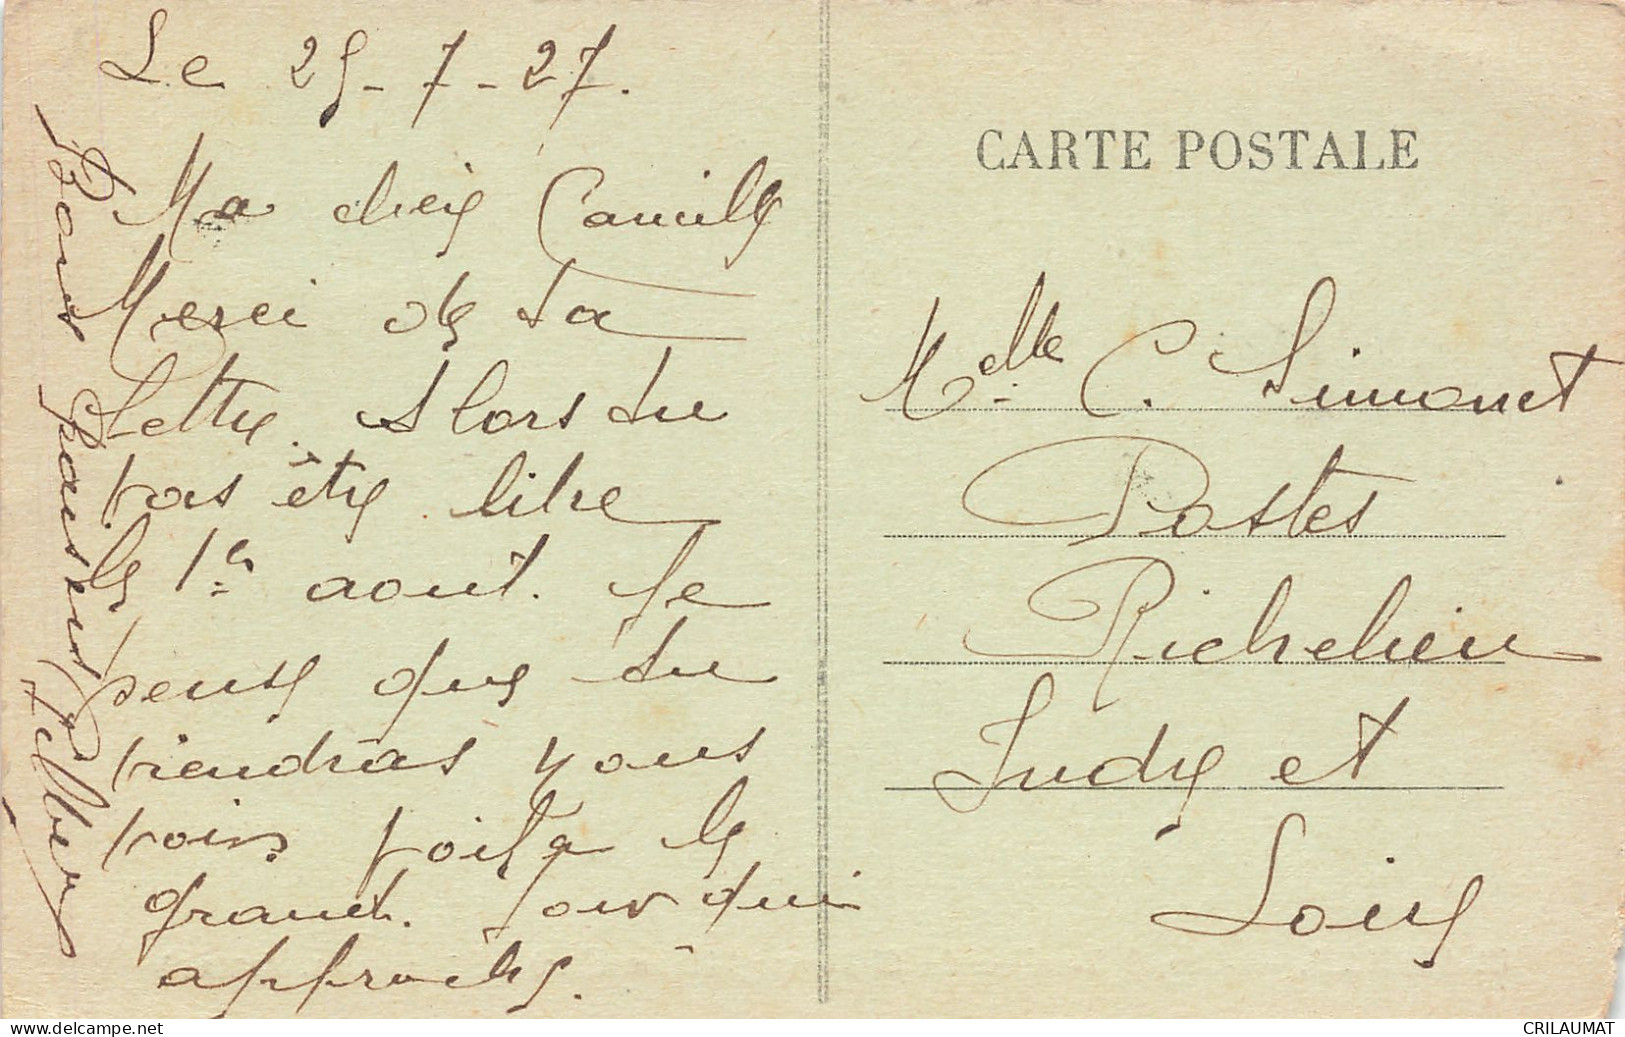 Le 25-7-27.
Ma chère Camille
Merci de ta
lettre. Alors tu
vas être libre
le 1er août. Je
pense que tu
viendras nous
voir voilà le
grand. Jour qui
approche.
Bons baisers
CARTE POSTALE
Melle C. Simonet
Postes
Richelieu
Indre et
Loire
CRILAUMAT
delcampe.net